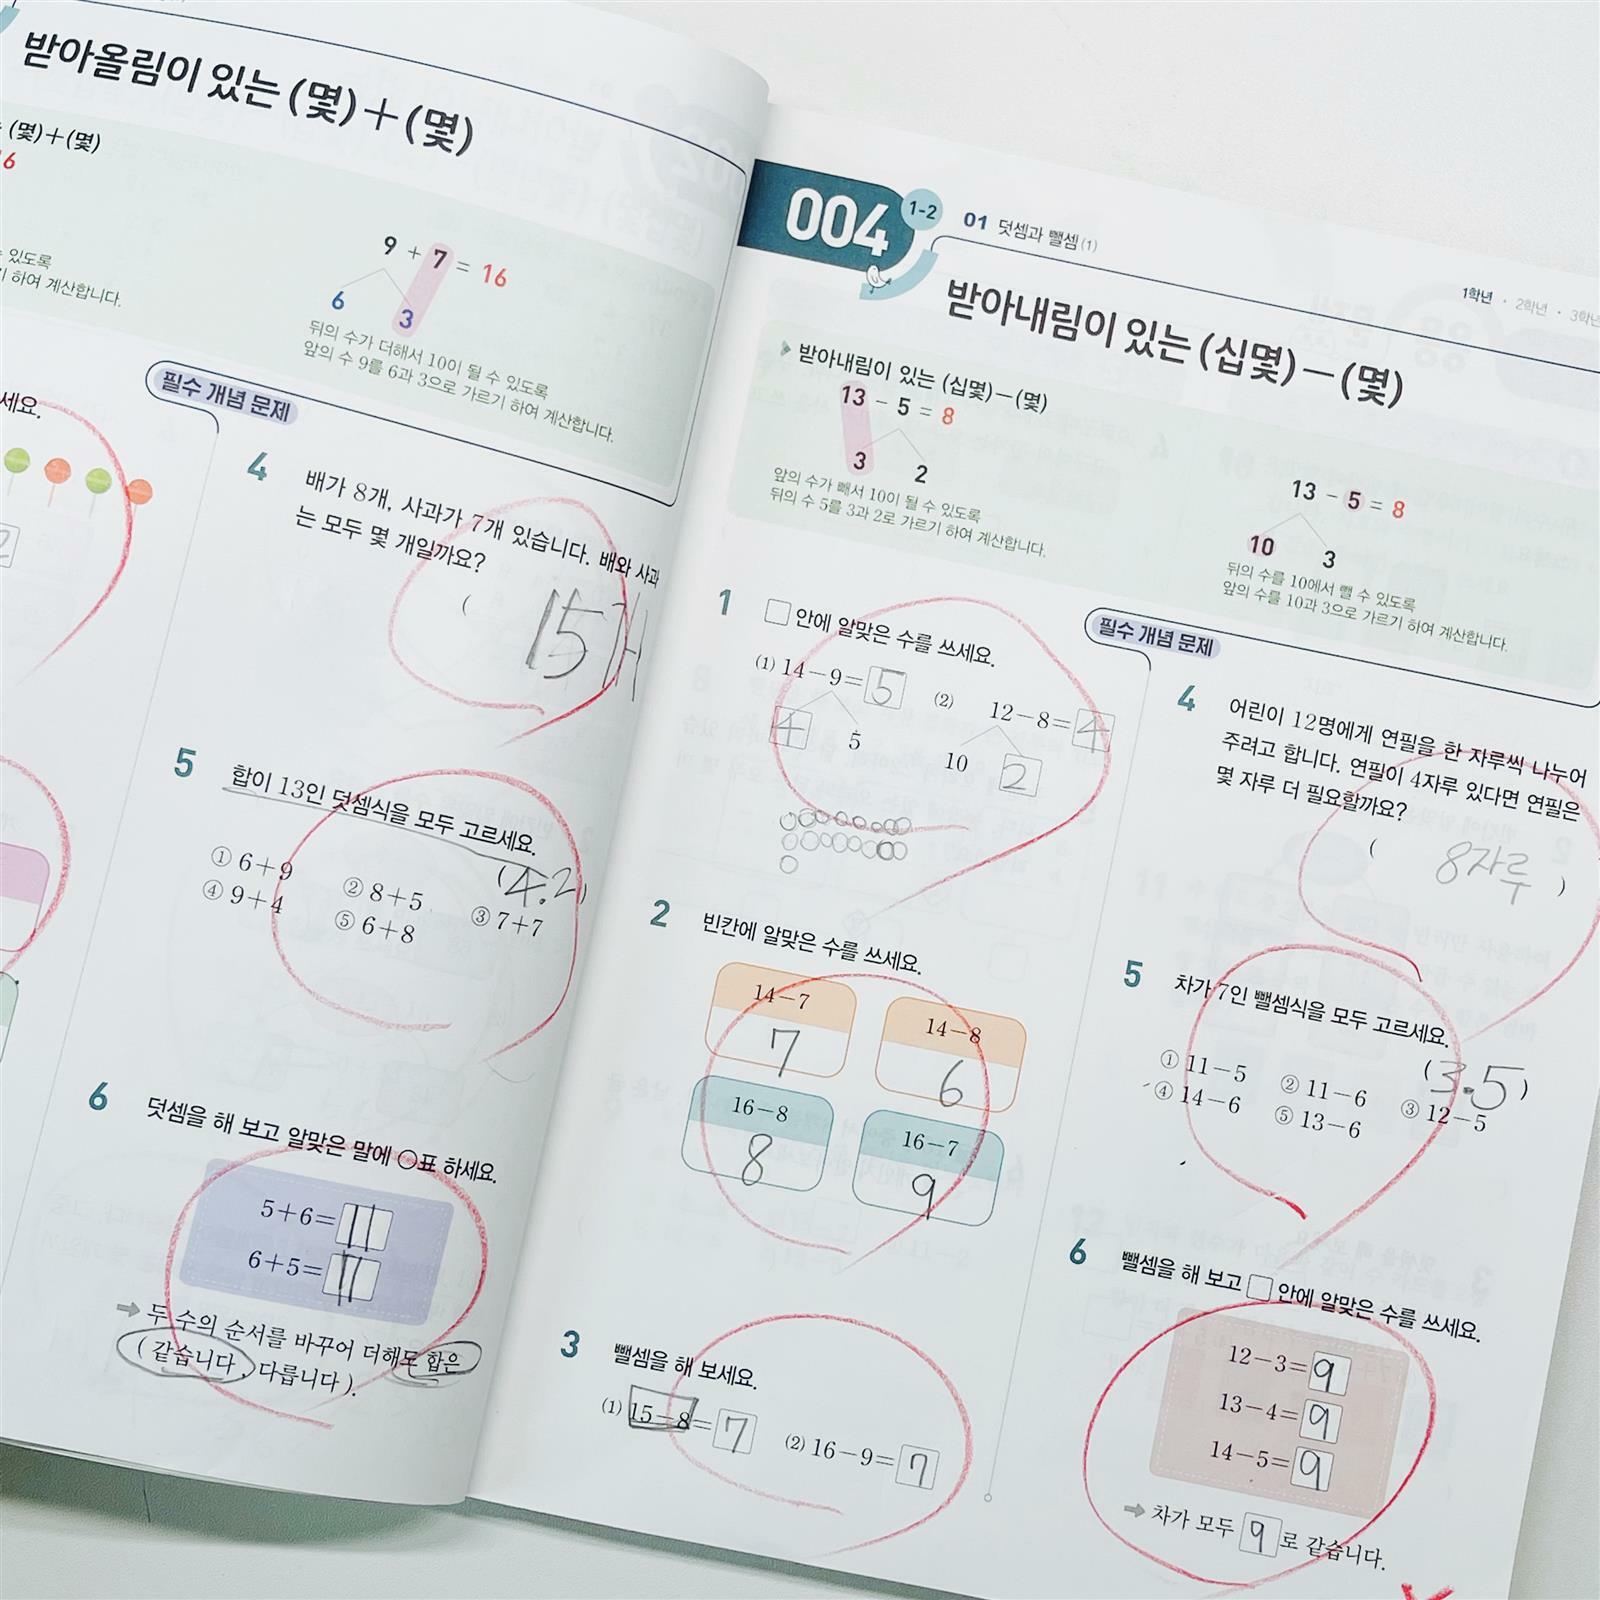 받아올림이 있는 (몇)+(몇)
(몇)+(몇)
9 + 7 = 16
6 3
있도록
하여 계산합니다.
뒤의 수가 더해서 10이 될 수 있도록
앞의 수 9를 6과 3으로 가르기 하여 계산합니다.
세요.
필수 개념 문제
4 배가 8개, 사과가 7개 있습니다. 배와 사과
는 모두 몇 개일까요?
( 15개
5 합이 13인 덧셈식을 모두 고르세요.
(4.2)
① 6+9 ② 8+5 ③ 7+7
④ 9+4 ⑤ 6+8
6 덧셈을 해 보고 알맞은 말에 ○표 하세요.
5+6=11
6+5=11
➡ 두 수의 순서를 바꾸어 더해도 합은
(같습니다, 다릅니다).
004 1-2 01 덧셈과 뺄셈(1)
1학년 · 2학년 · 3학년
받아내림이 있는 (십몇)-(몇)
받아내림이 있는 (십몇)-(몇)
13 - 5 = 8
3 2
앞의 수가 빼서 10이 될 수 있도록
뒤의 수 5를 3과 2로 가르기 하여 계산합니다.
13 - 5 = 8
10 3
뒤의 수를 10에서 뺄 수 있도록
앞의 수를 10과 3으로 가르기 하여 계산합니다.
1 □ 안에 알맞은 수를 쓰세요.
(1) 14-9=5 (2) 12-8=4
4 5 10 2
2 빈칸에 알맞은 수를 쓰세요.
14-7 14-8
7 6
16-8 16-7
8 9
3 뺄셈을 해 보세요.
(1) 15-8=7 (2) 16-9=7
필수 개념 문제
4 어린이 12명에게 연필을 한 자루씩 나누어
주려고 합니다. 연필이 4자루 있다면 연필은
몇 자루 더 필요할까요?
( 8자루 )
5 차가 7인 뺄셈식을 모두 고르세요.
(3.5)
① 11-5 ② 11-6 ③ 12-5
④ 14-6 ⑤ 13-6
6 뺄셈을 해 보고 □ 안에 알맞은 수를 쓰세요.
12-3=9
13-4=9
14-5=9
➡ 차가 모두 9로 같습니다.